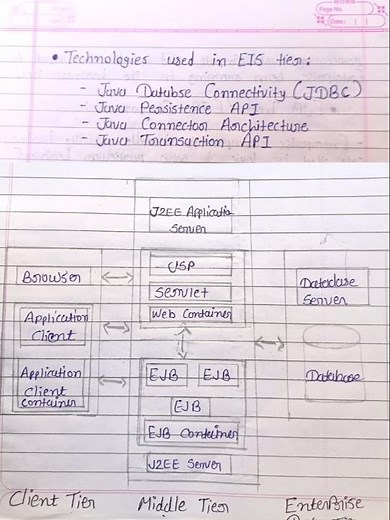 Page No.
Date:
• Technologies used in EIS tier:
- Java Databse Connectivity (JDBC)
- Java Persistence API
- Java Connector Architecture
- Java Transaction API
J2EE Applicatio
Server
JSP
Servlet
Web Container
Browser
Application
Client
Application
Client
Container
EJB EJB
EJB
EJB Container
J2EE Server
Database
Server
Database
Client Tier Middle Tier Enterprise